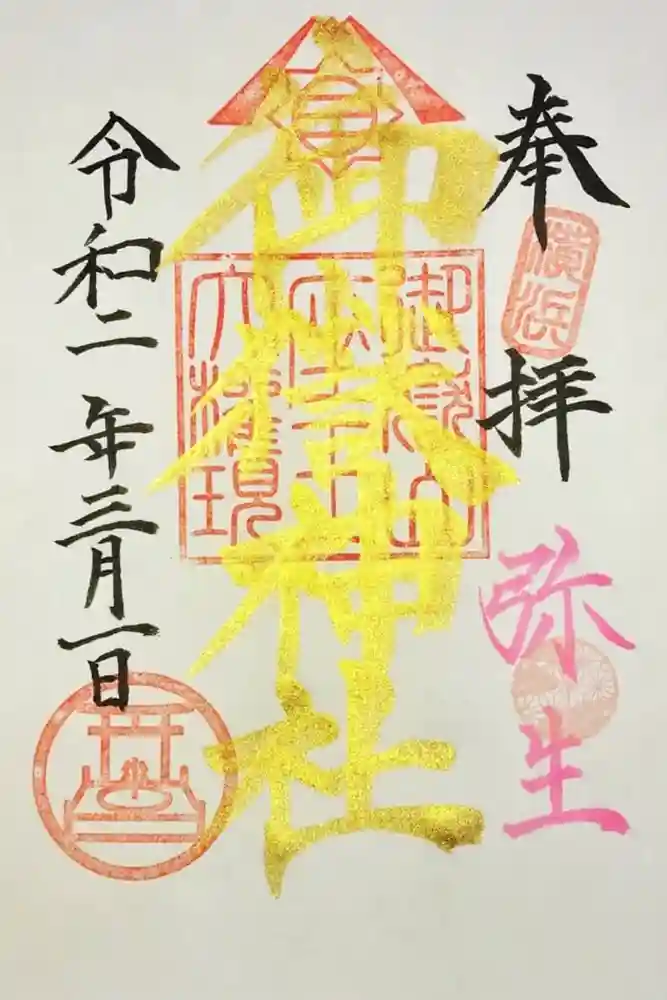 奉拝
横浜
弥生
御嶽神社
御嶽山
座王
大権現
令和二年三月一日